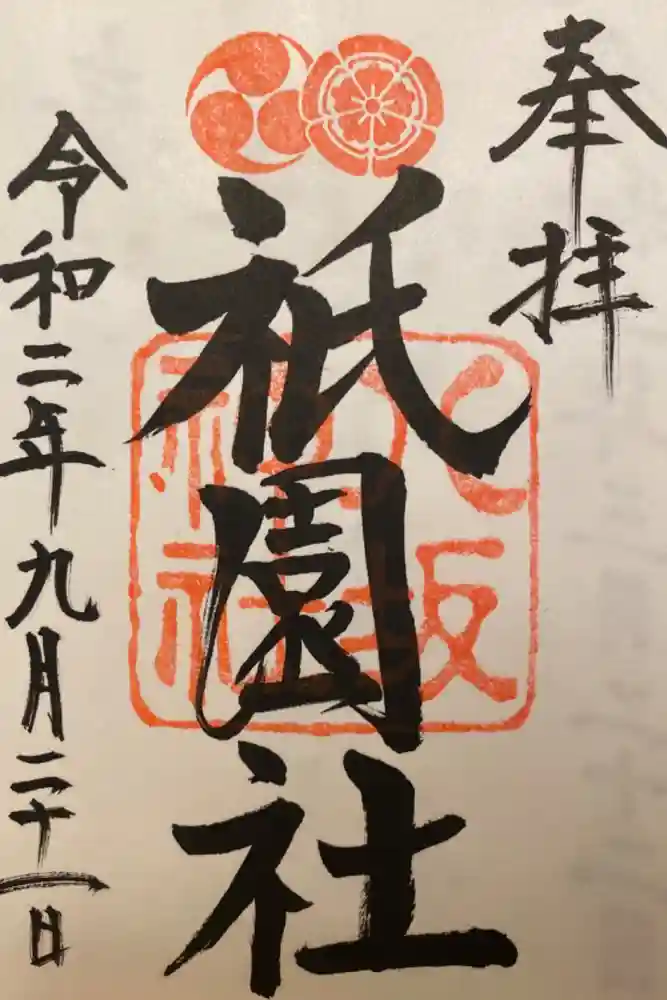 奉拝
八坂神社
祇園社
令和二年九月二十一日